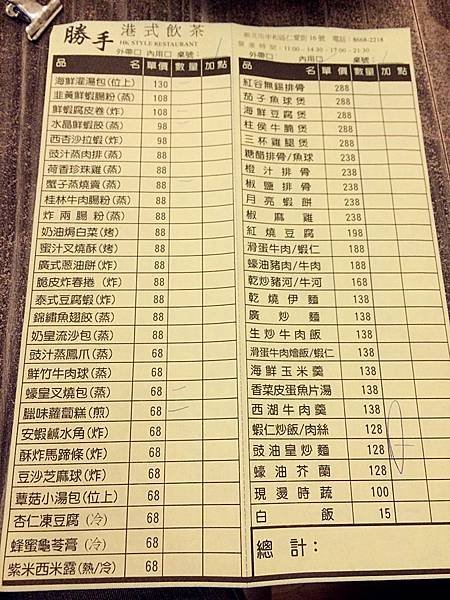 勝手 港式飲茶
HK STYLE RESTAURANT
新北市中和區仁愛街16號 電話：8668-2218
營業時間：11:00-14:30、17:00-21:30
外帶口 內用口 桌號：
品名 單價 數量 加點
海鮮灌湯包(位上) 130
韭黃鮮蝦腸粉(蒸) 108
鮮蝦腐皮卷(炸) 108
水晶鮮蝦餃(蒸) 98
西杏沙拉蝦(炸) 98
豉汁蒸肉排(蒸) 88
荷香珍珠雞(蒸) 88
蟹子蒸燒賣(蒸) 88
桂林牛肉腸粉(蒸) 88
炸兩腸粉(蒸) 88
奶油焗白菜(烤) 88
蜜汁叉燒酥(烤) 88
廣式蔥油餅(炸) 88
脆皮炸春捲(炸) 88
泰式豆腐蝦(炸) 88
錦鏽魚翅餃(蒸) 88
奶皇流沙包(蒸) 88
豉汁蒸鳳爪(蒸) 68
鮮竹牛肉球(蒸) 68
蠔皇叉燒包(蒸) 68
臘味蘿蔔糕(煎) 68
安蝦鹹水角(炸) 68
酥炸馬蹄條(炸) 68
豆沙芝麻球(炸) 68
蕈菇小湯包(位上) 68
杏仁凍豆腐(冷) 68
蜂蜜龜苓膏(冷) 68
紫米西米露(熱/冷) 68
外帶口 內用口 桌號：
品名 單價 數量 加點
紅谷無錫排骨 288
茄子魚球煲 288
海鮮豆腐煲 288
柱侯牛腩煲 288
三杯雞腿煲 288
糖醋排骨/魚球 238
橙汁排骨 238
椒鹽排骨 238
月亮蝦餅 238
椒麻雞 238
紅燒豆腐 198
滑蛋牛肉/蝦仁 188
蠔油豬肉/牛肉 188
乾炒豬河/牛河 168
乾燒伊麵 138
廣炒麵 138
生炒牛肉飯 138
滑蛋牛肉燴飯/蝦仁 138
海鮮玉米羹 138
香菜皮蛋魚片湯 138
西湖牛肉羹 138
蝦仁炒飯/肉絲 128
豉油皇炒麵 128
蠔油芥蘭 128
現燙時蔬 100
白飯 15
總計：